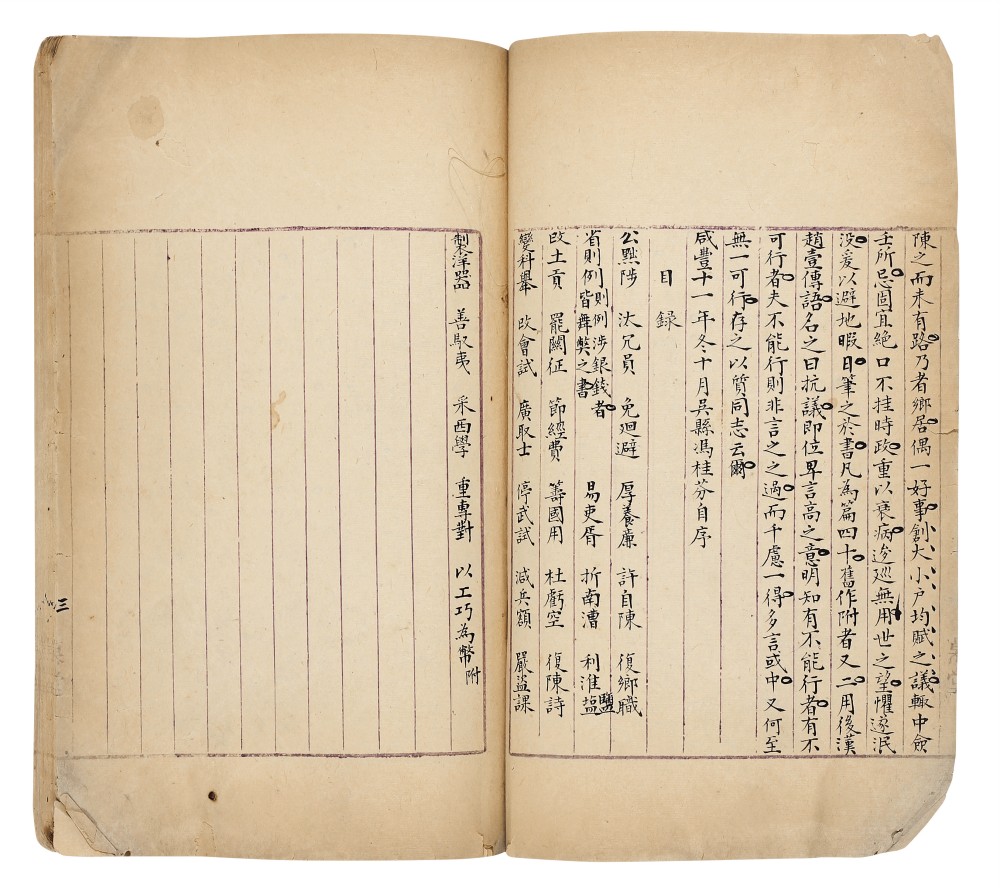 陳之而未有路乃者鄉居偶一好事創大小户均賦之議輒中僉
壬所忌固宜絶口不挂時政重以衰病逡巡無用世之望懼遂泯
没爰以避地暇日筆之於書凡為篇四十舊作附者又二用後漢
趙壹傳語名之曰抗議即位卑言高之意明知有不能行者有不
可行者夫不能行則非言之之過而千慮一得多言或中又何至
無一可行存之以質同志云爾
咸豐十一年冬十月吳縣馮桂芬自序
目録
公黜陟 汰冗員 免迴避 厚養廉 許自陳 復鄉職
省則例 則例涉銀錢者皆舞獘之書 易吏胥 折南漕 利淮塩鹽
改土貢 罷關征 節經費 籌國用 杜虧空 復陳詩
變科舉 改會試 廣取士 停武試 減兵額 嚴盜課
製洋器 善馭夷 采西學 重專對 以工巧為幣附
三